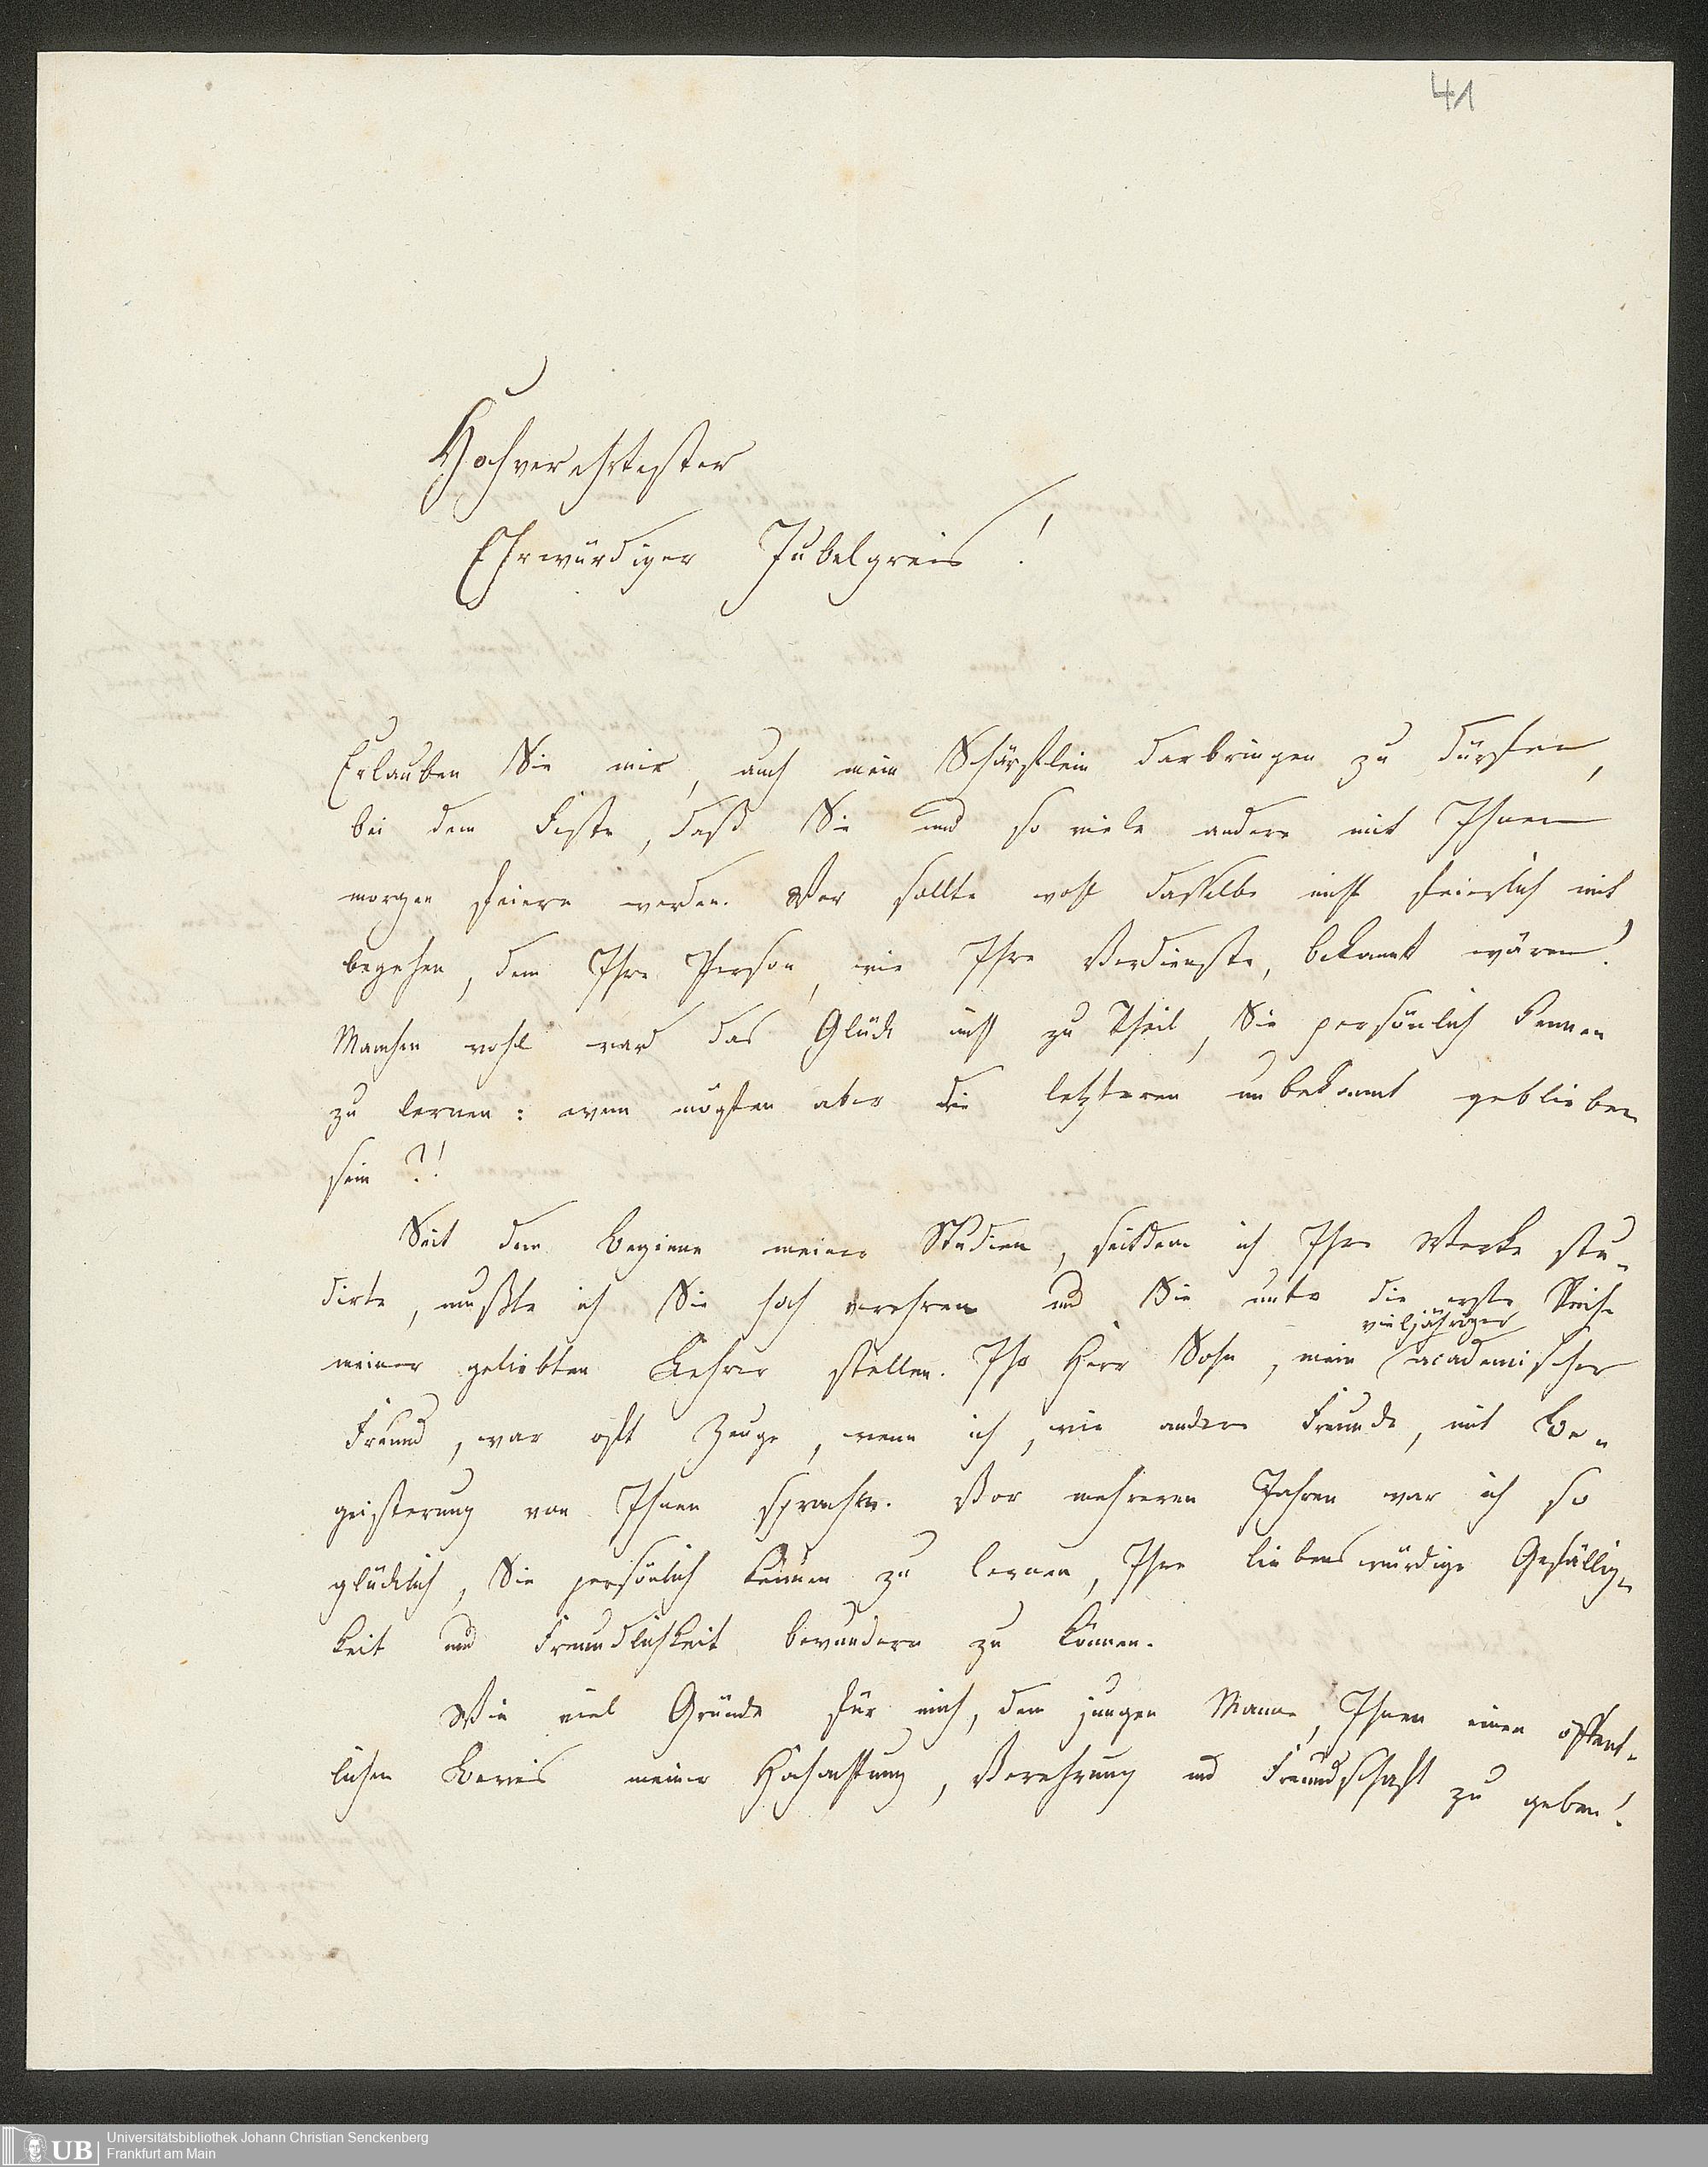 41
Hochverehrtester
Ehrwürdiger Jubelgreis!
Erlauben Sie mir, auch mein Schärflein darbringen zu dürfen,
bei dem Feste, daß Sie und so viele andere mit Ihnen
morgen feiern werden. Wer sollte wohl dasselbe nicht feierlich mit
begehen, dem Ihre Person, wie Ihre Verdienste, bekannt wären!
Manchen wohl ward das Glück nicht zu Theil, Sie persönlich kennen
zu lernen: wem mögten aber die letzteren unbekannt geblieben
sein?!
Seit dem Beginne meiner Studien, seitdem ich Ihre Werke stu-
dirte, mußte ich Sie hoch verehren und Sie unter die erste Reihe
vieljähriger
meiner geliebten Lehrer stellen. Ihr Herr Sohn, mein academischer
Freund, war oft Zeuge, wenn ich, wie andere Freunde, mit Be-
geisterung von Ihnen sprachen. Vor mehreren Jahren war ich so
glücklich, Sie persönlich kennen zu lernen, Ihre liebenswürdige Gefällig-
keit und Freundlichkeit bewundern zu können.
Wie viel Gründe für mich, dem jungen Manne, Ihnen einen öffent-
lichen Beweis meiner Hochachtung, Verehrung und Freundschaft zu geben!
UB
Universitätsbibliothek Johann Christian Senckenberg
Frankfurt am Main